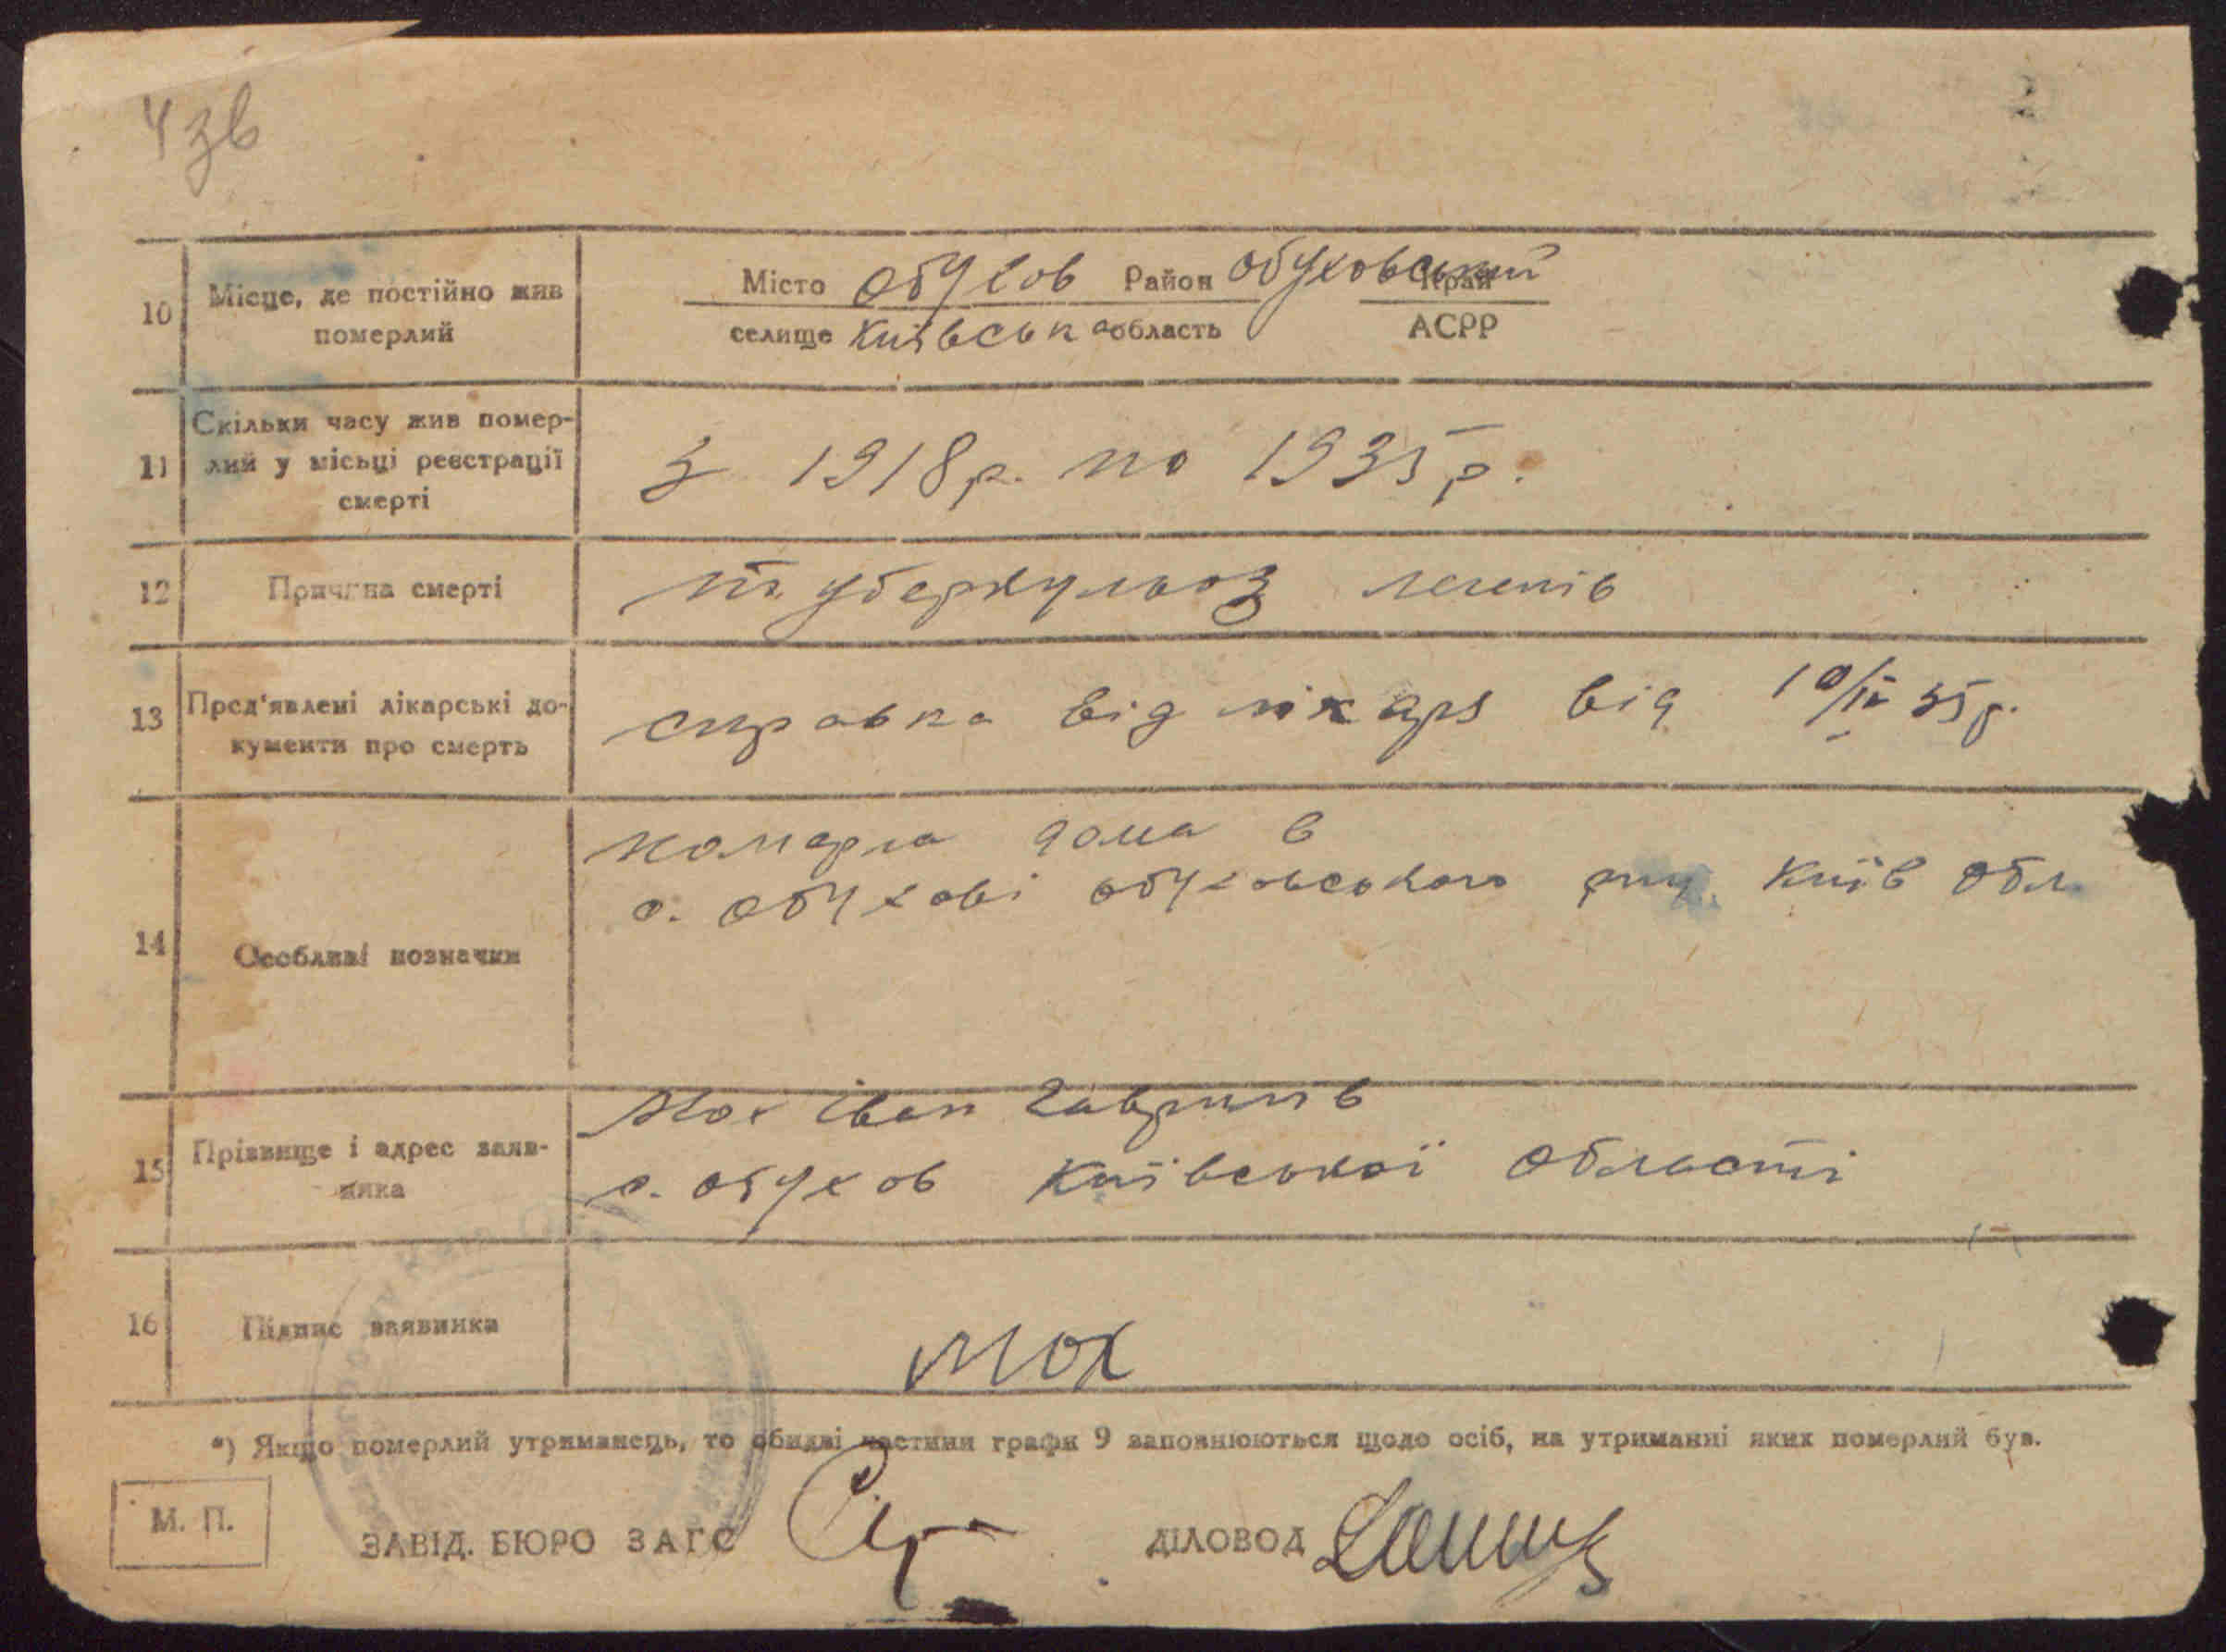 4 зв
10 Місце, де постійно жив померлий
Місто Обухов Район Обуховський Край
селище Київська область АСРР
11 Скільки часу жив помер-
лий у місьці реєстрації
смерті
З 1918 р. по 1935 р.
12 Причина смерті туберкульоз легенів
13 Пред'явлені лікарські до-
кументи про смерть
справка від лікаря від 10/IV 35 р.
14 Особливі позначки
померла дома в
с. Обухові Обуховського Київ обл
15 Прізвище і адрес заяв-
ника
Мох Іван Гаврилів
с. Обухов Київської області
16 Підпис заявника Мох
*) Якщо померлий утриманець, то обидві частини графи 9 заповнюються щодо осіб, на утриманні яких померлий був.
М. П.
ЗАВІД. БЮРО ЗАГС ДІЛОВОД